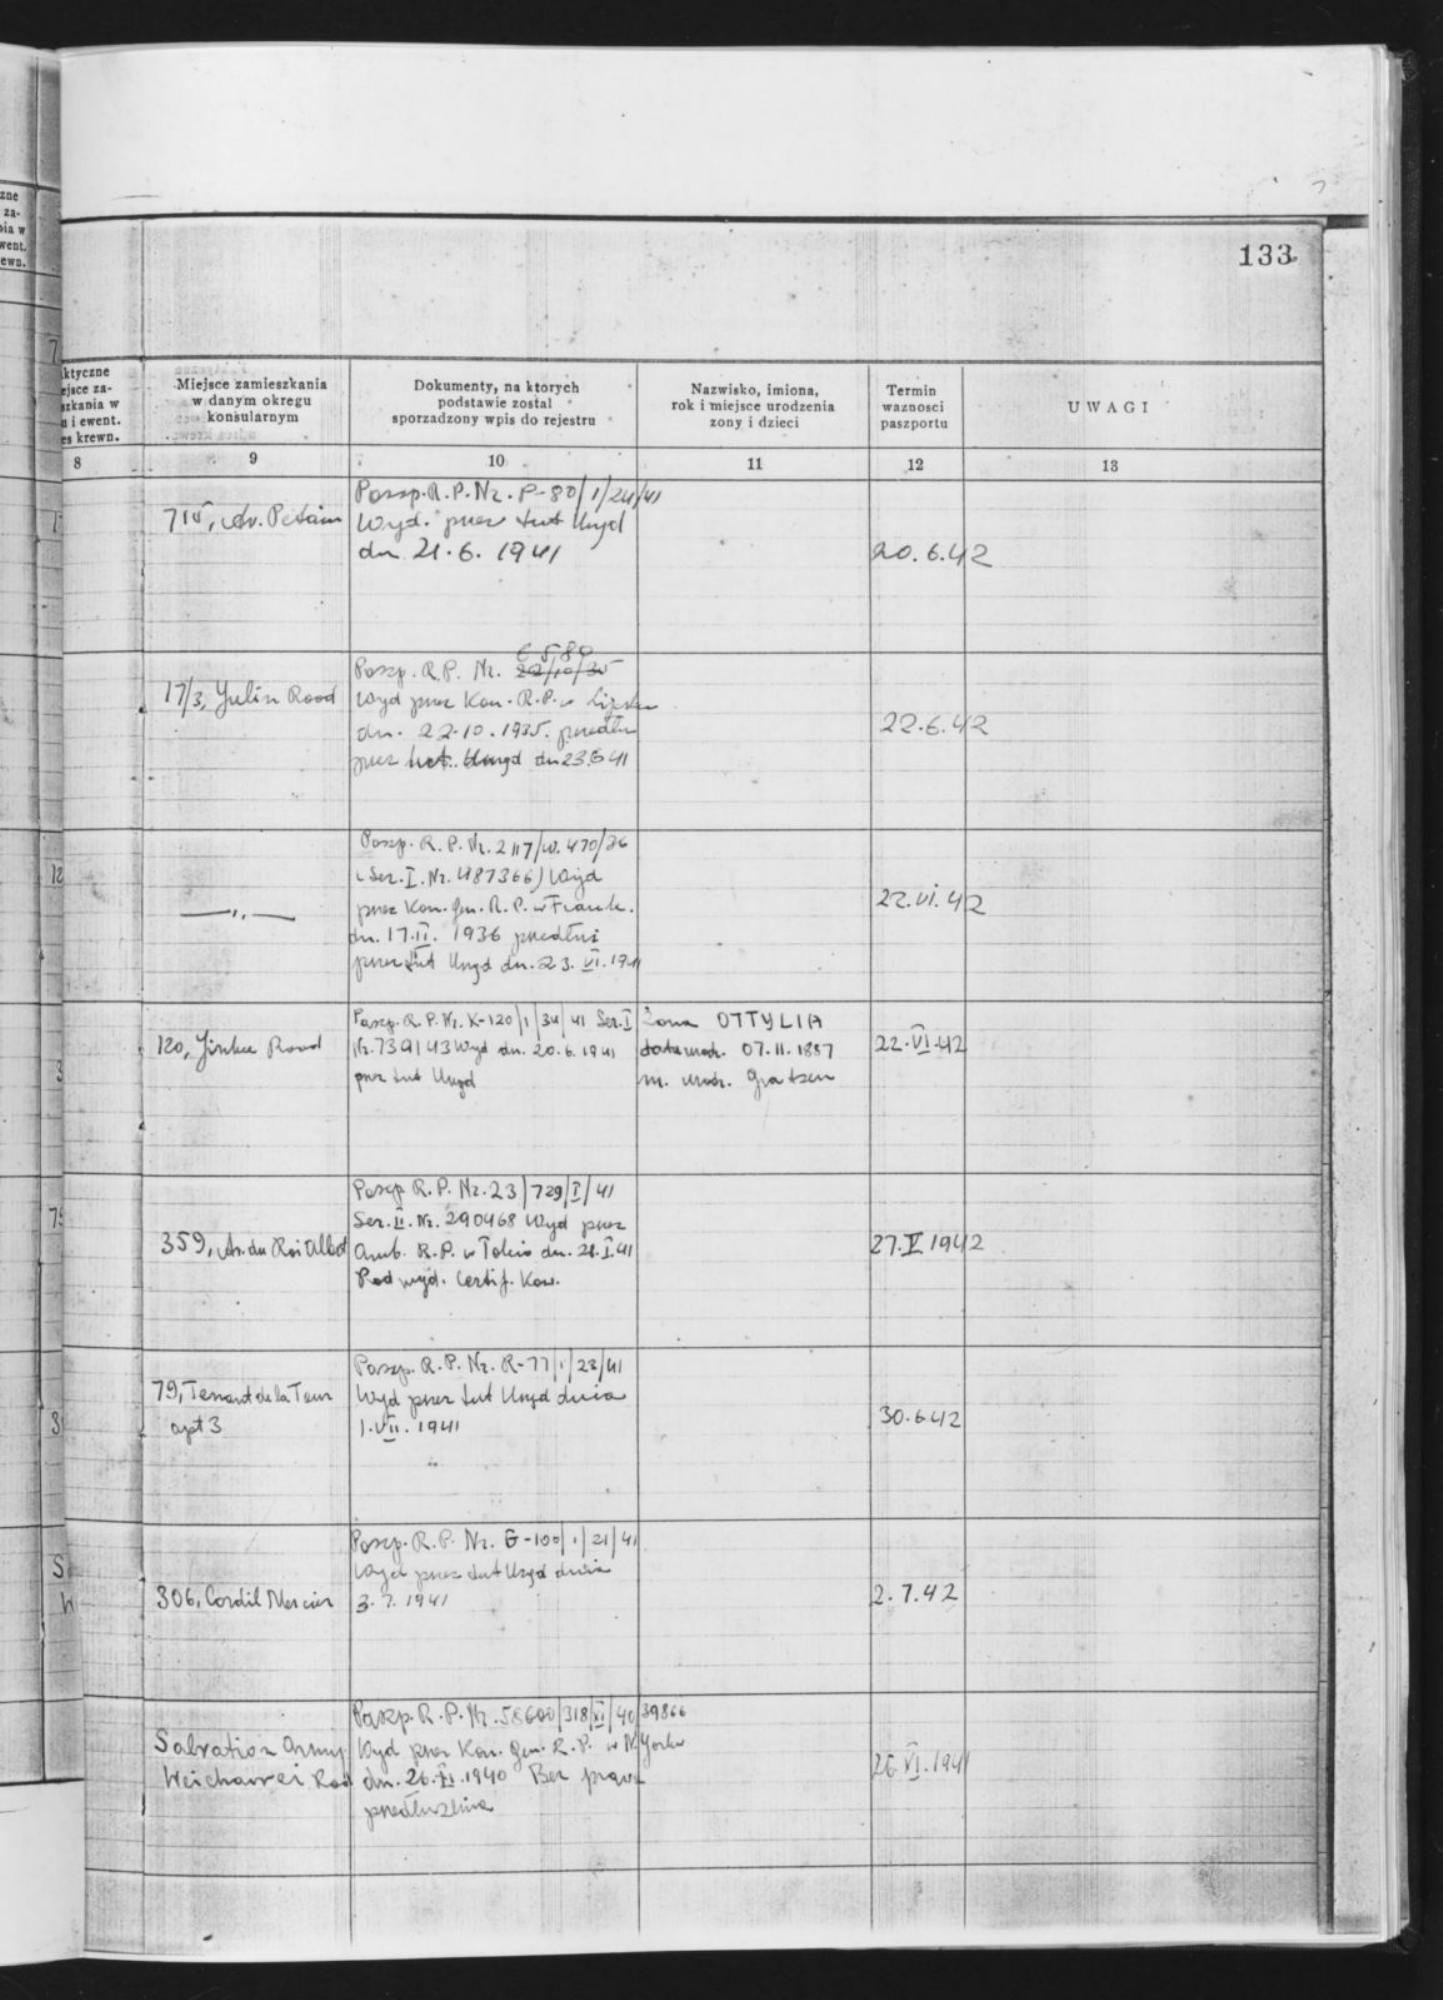 133
zne
za-
bia w
went.
ewn.
ktyczne
ejsce za-
szkania w
u i ewent.
es krewn.
Miejsce zamieszkania
w danym okregu
konsularnym
Dokumenty, na ktorych
podstawie zostal
sporzadzony wpis do rejestru
Nazwisko, imiona,
rok i miejsce urodzenia
zony i dzieci
Termin
waznosci
paszportu
UWAGI
8 9 10 11 12 13
715, Av. Petain
Paszp. R. P. Nr. P-80/1/24/41
Wyd. przez tut Urzd
dn 21.6. 1941
20.6.42
17/3, Yulin Road
6580
Paszp. R.P. Nr. 22/10/35
Wyd przez Kon. R.P. w Lipsku
dn. 22.10.1935. przedłu
przez tut. Urzd dn 23.6 41
22.6.42
—„—
Paszp. R. P. Nr. 2117/W. 470/36
(Ser. I. Nr. 487366) Wyd
przez Kon. Gen. R. P. w Frank.
dn. 17.II. 1936 przedłuż
przez tut Urzd dn. 23. VI. 1941
22.VI.42
120, Jinkee Road
Paszp. R. P. Nr. K-120/1/34/41 Ser. I
Nr. 739143 Wyd dn. 20.6.1941
przez tut Urzd
Żona OTTYLIA
data urodz. 07.11.1887
m. urodz. Gratzen
22.VI.42
359, Av. du Roi Albert
Paszp R. P. Nr. 23/729/I/41
Ser. II. Nr. 290468 Wyd przez
Amb. R. P. w Tokio dn. 28.I.41
Pod wyd. Certif. Kon.
27.V 1942
79, Tenant de la Tour
apt 3
Paszp. R. P. Nr. R-77/1/23/41
Wyd przez tut Urzd dnia
1.VII. 1941
30.6.42
306, Cardil Mercier
Paszp. R. P. Nr. G-100/1/21/41
Wyd przez tut Urzd dnia
3.7. 1941
2.7.42
Salvation Army
Weichawei Road
Paszp. R. P. Nr. 58600/318/XI/40/39866
Wyd przez Kon. Gen. R. P. w N. Yorku
dn. 26.XI.1940 Bez prawa
przedłużenia
26 VI.1941